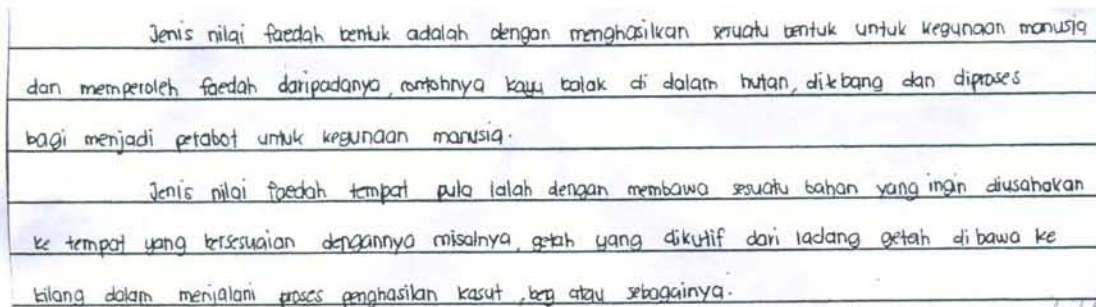 Jenis nilai faedah bentuk adalah dengan menghasilkan sesuatu bentuk untuk kegunaan manusia
dan memperoleh faedah daripadanya, contohnya kayu balak di dalam hutan, dikbang dan diproses
bagi menjadi perabot untuk kegunaan manusia.
Jenis nilai faedah tempat pula ialah dengan membawa sesuatu bahan yang ingin diusahakan
ke tempat yang bersesuaian dengannya misalnya, getah yang dikutif dari ladang getah dibawa ke
kilang dalam menjalani proses penghasilan kasut, beg atau sebagainya.